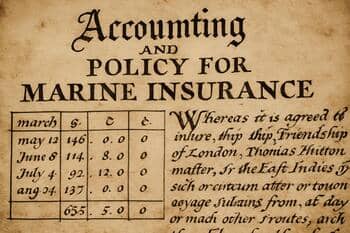 Accoumting
AND
POLICY FOR
MARINE INSURANCE
march s. c c.
may 12 146. 0. 0 0
June 8 114. 8. 0 0
July 4 92. 12. 0 0
ang 34 137. 0. 0 0
635. 5. 0 0
Whereas it is agreed to
inlure, thip thip, Friendship
of London, Thonias Hutton
matter, Jr the East Indies
such or circum atter or
voyage from, at day
or mach other routes,